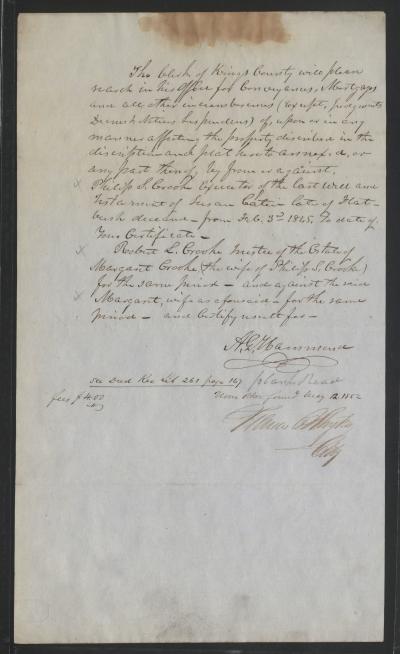 The Clerk of Kings County will please
search in his Office for Conveyances, Mortgages
and all other incumbrances (except, judgments
Decrees & Notices Lis pendens) of, upon or in any
manner affecting the property described in the
description and plat hereto annexed, or
any part thereof, by from or against.
x Philip S. Crooke Executor of the last Will and
Testament of Susan Caton late of Flat-
bush deceased - from Feb. 3rd 1845, To date of
Your Certificate -
x Robert L. Crooke Trustee of the Estate of
Margaret Crooke (the wife of Philip S. Crooke)
for the same period - and against the said
x Margaret, wife as aforesaid - for the same
period - and Certify result for -
A. G. Hammond
See Deed Rec Lib 261 page 167
fees $4.00
None other found May 12 1852
Clk